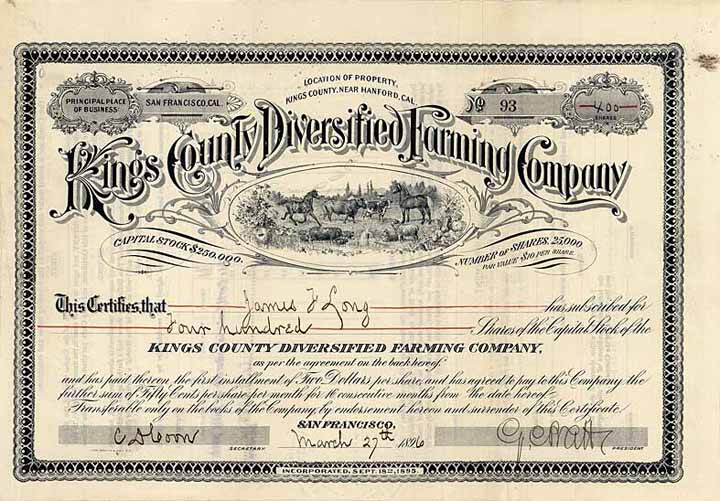 LOCATION OF PROPERTY,
KINGS COUNTY, NEAR HANFORD, CAL.
PRINCIPAL PLACE
OF BUSINESS
SAN FRANCISCO, CAL.
No 93
400
SHARES
Kings County Diversified Farming Company
CAPITAL STOCK $250,000.
NUMBER OF SHARES, 25,000
PAR VALUE $10 PER SHARE.
This Certifies, that James F Long has subscribed for
Four hundred Shares of the Capital Stock of the
KINGS COUNTY DIVERSIFIED FARMING COMPANY,
as per the agreement on the back hereof
and has paid thereon the first installment of Two Dollars per share, and has agreed to pay to this Company the
further sum of Fifty Cents per share per month for 16 consecutive months from the date hereof.
Transferable only on the books of the Company, by endorsement hereon and surrender of this Certificate.
SAN FRANCISCO,
March 27th 1896
SECRETARY
PRESIDENT
INCORPORATED, SEPT. 18TH, 1895.